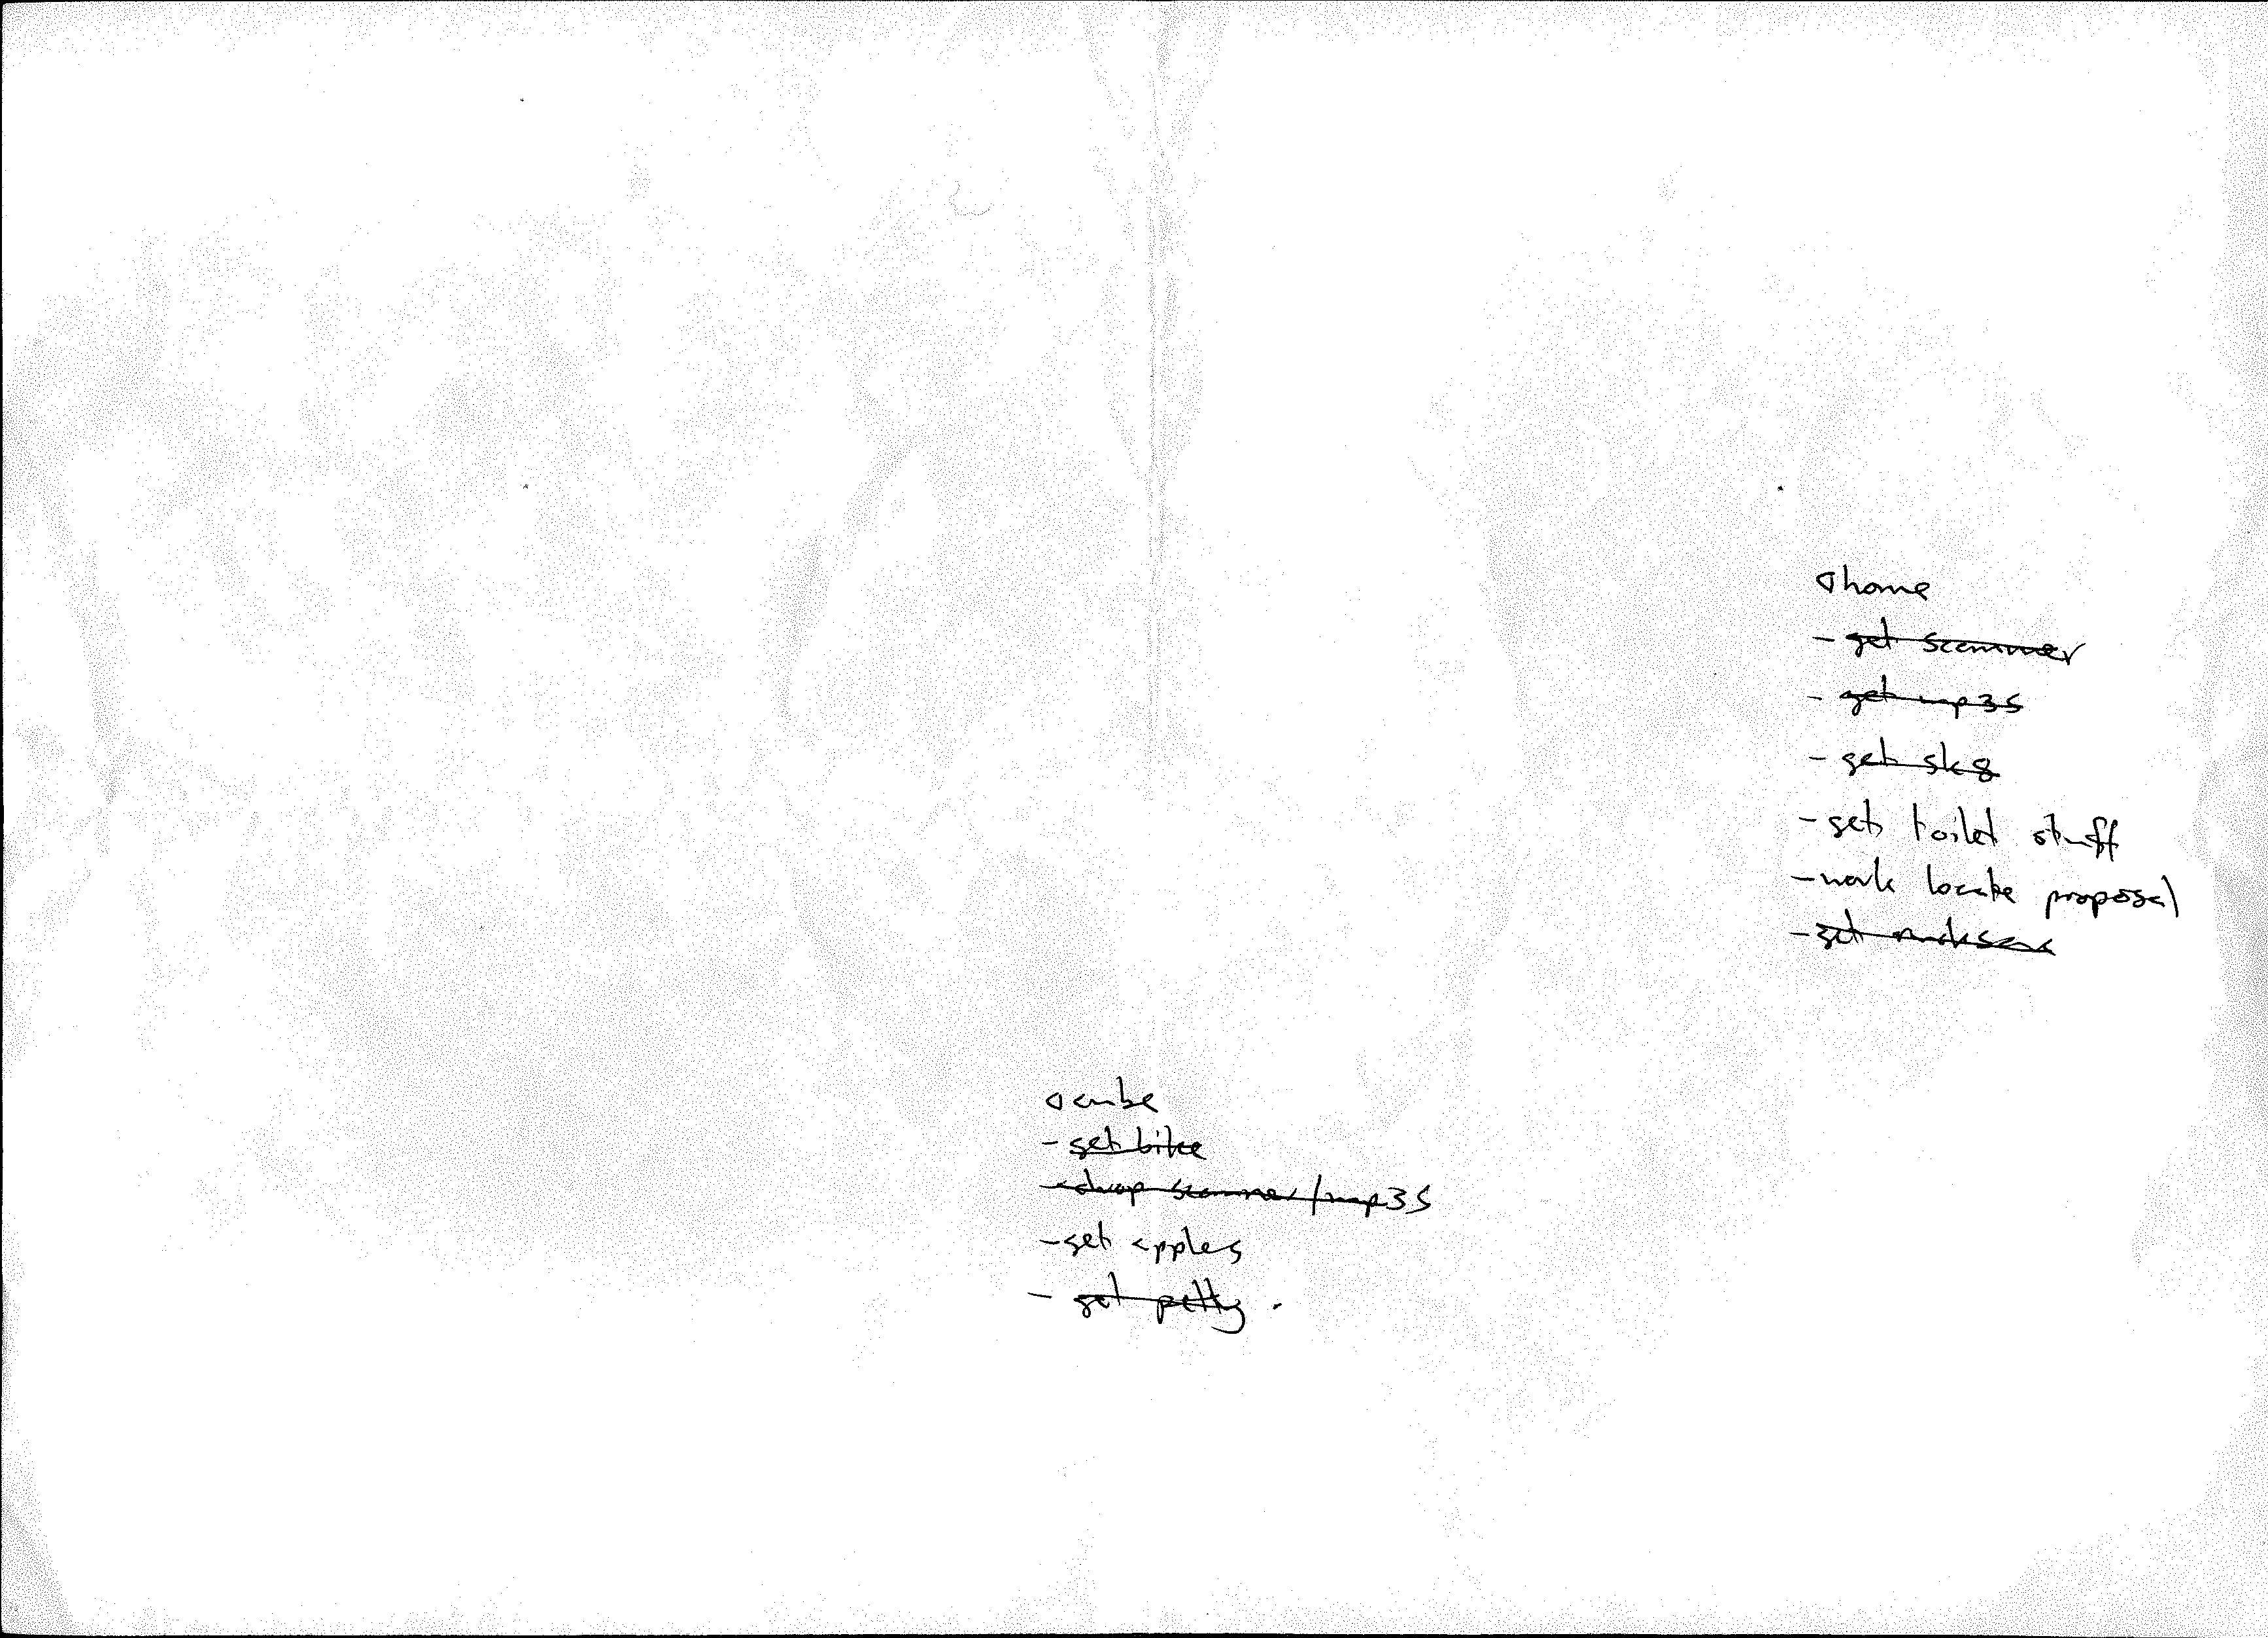 home
- get scanner
- get mp3s
- get sk8
- get toilet stuff
- work locate proposal
- get
cube
- get bike
- drop scanner/mp3s
- get apples
- get petty